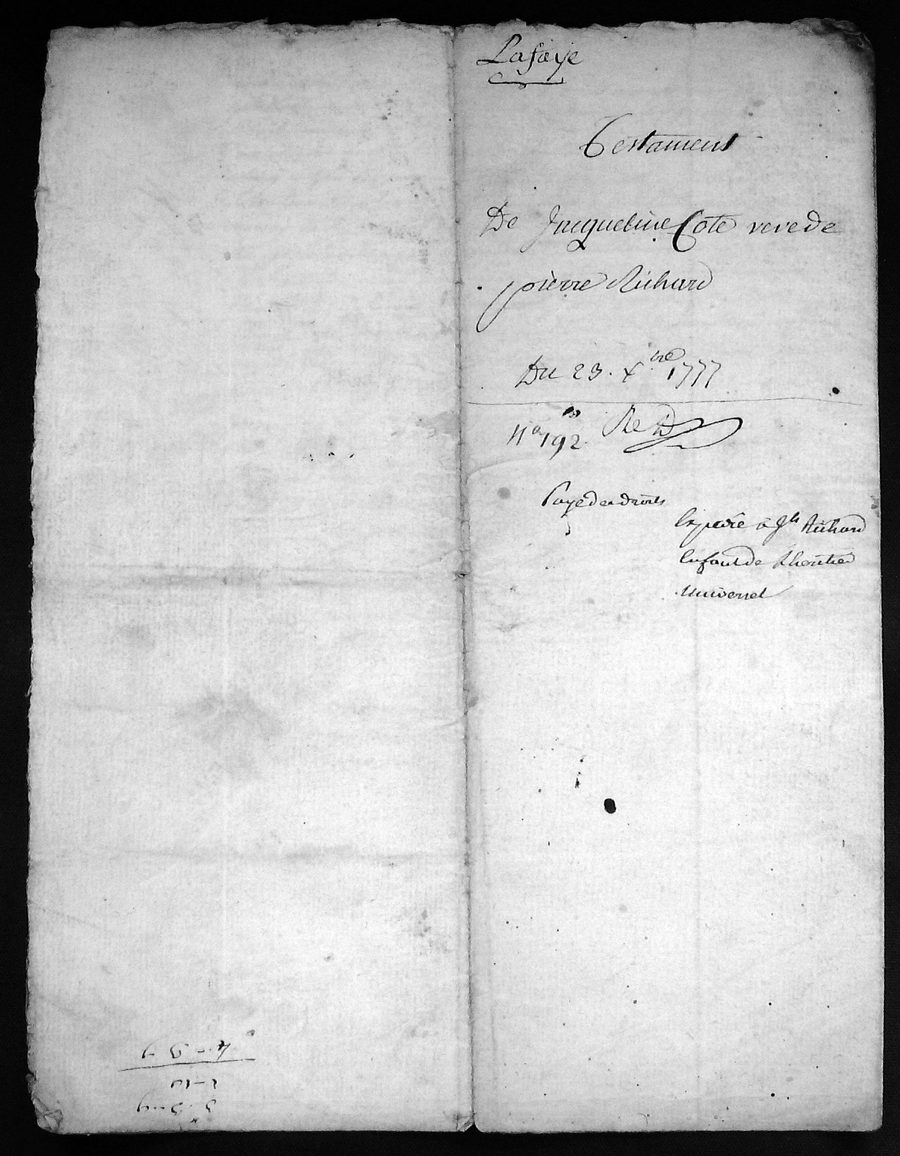 Lafaÿe
Testament
De Jacqueline Cote veve de
pierre Richard
Du 23. xbre 1777
No 192
Payé des droits
Expedié à Richard
Enfant de l'heritier
Universel